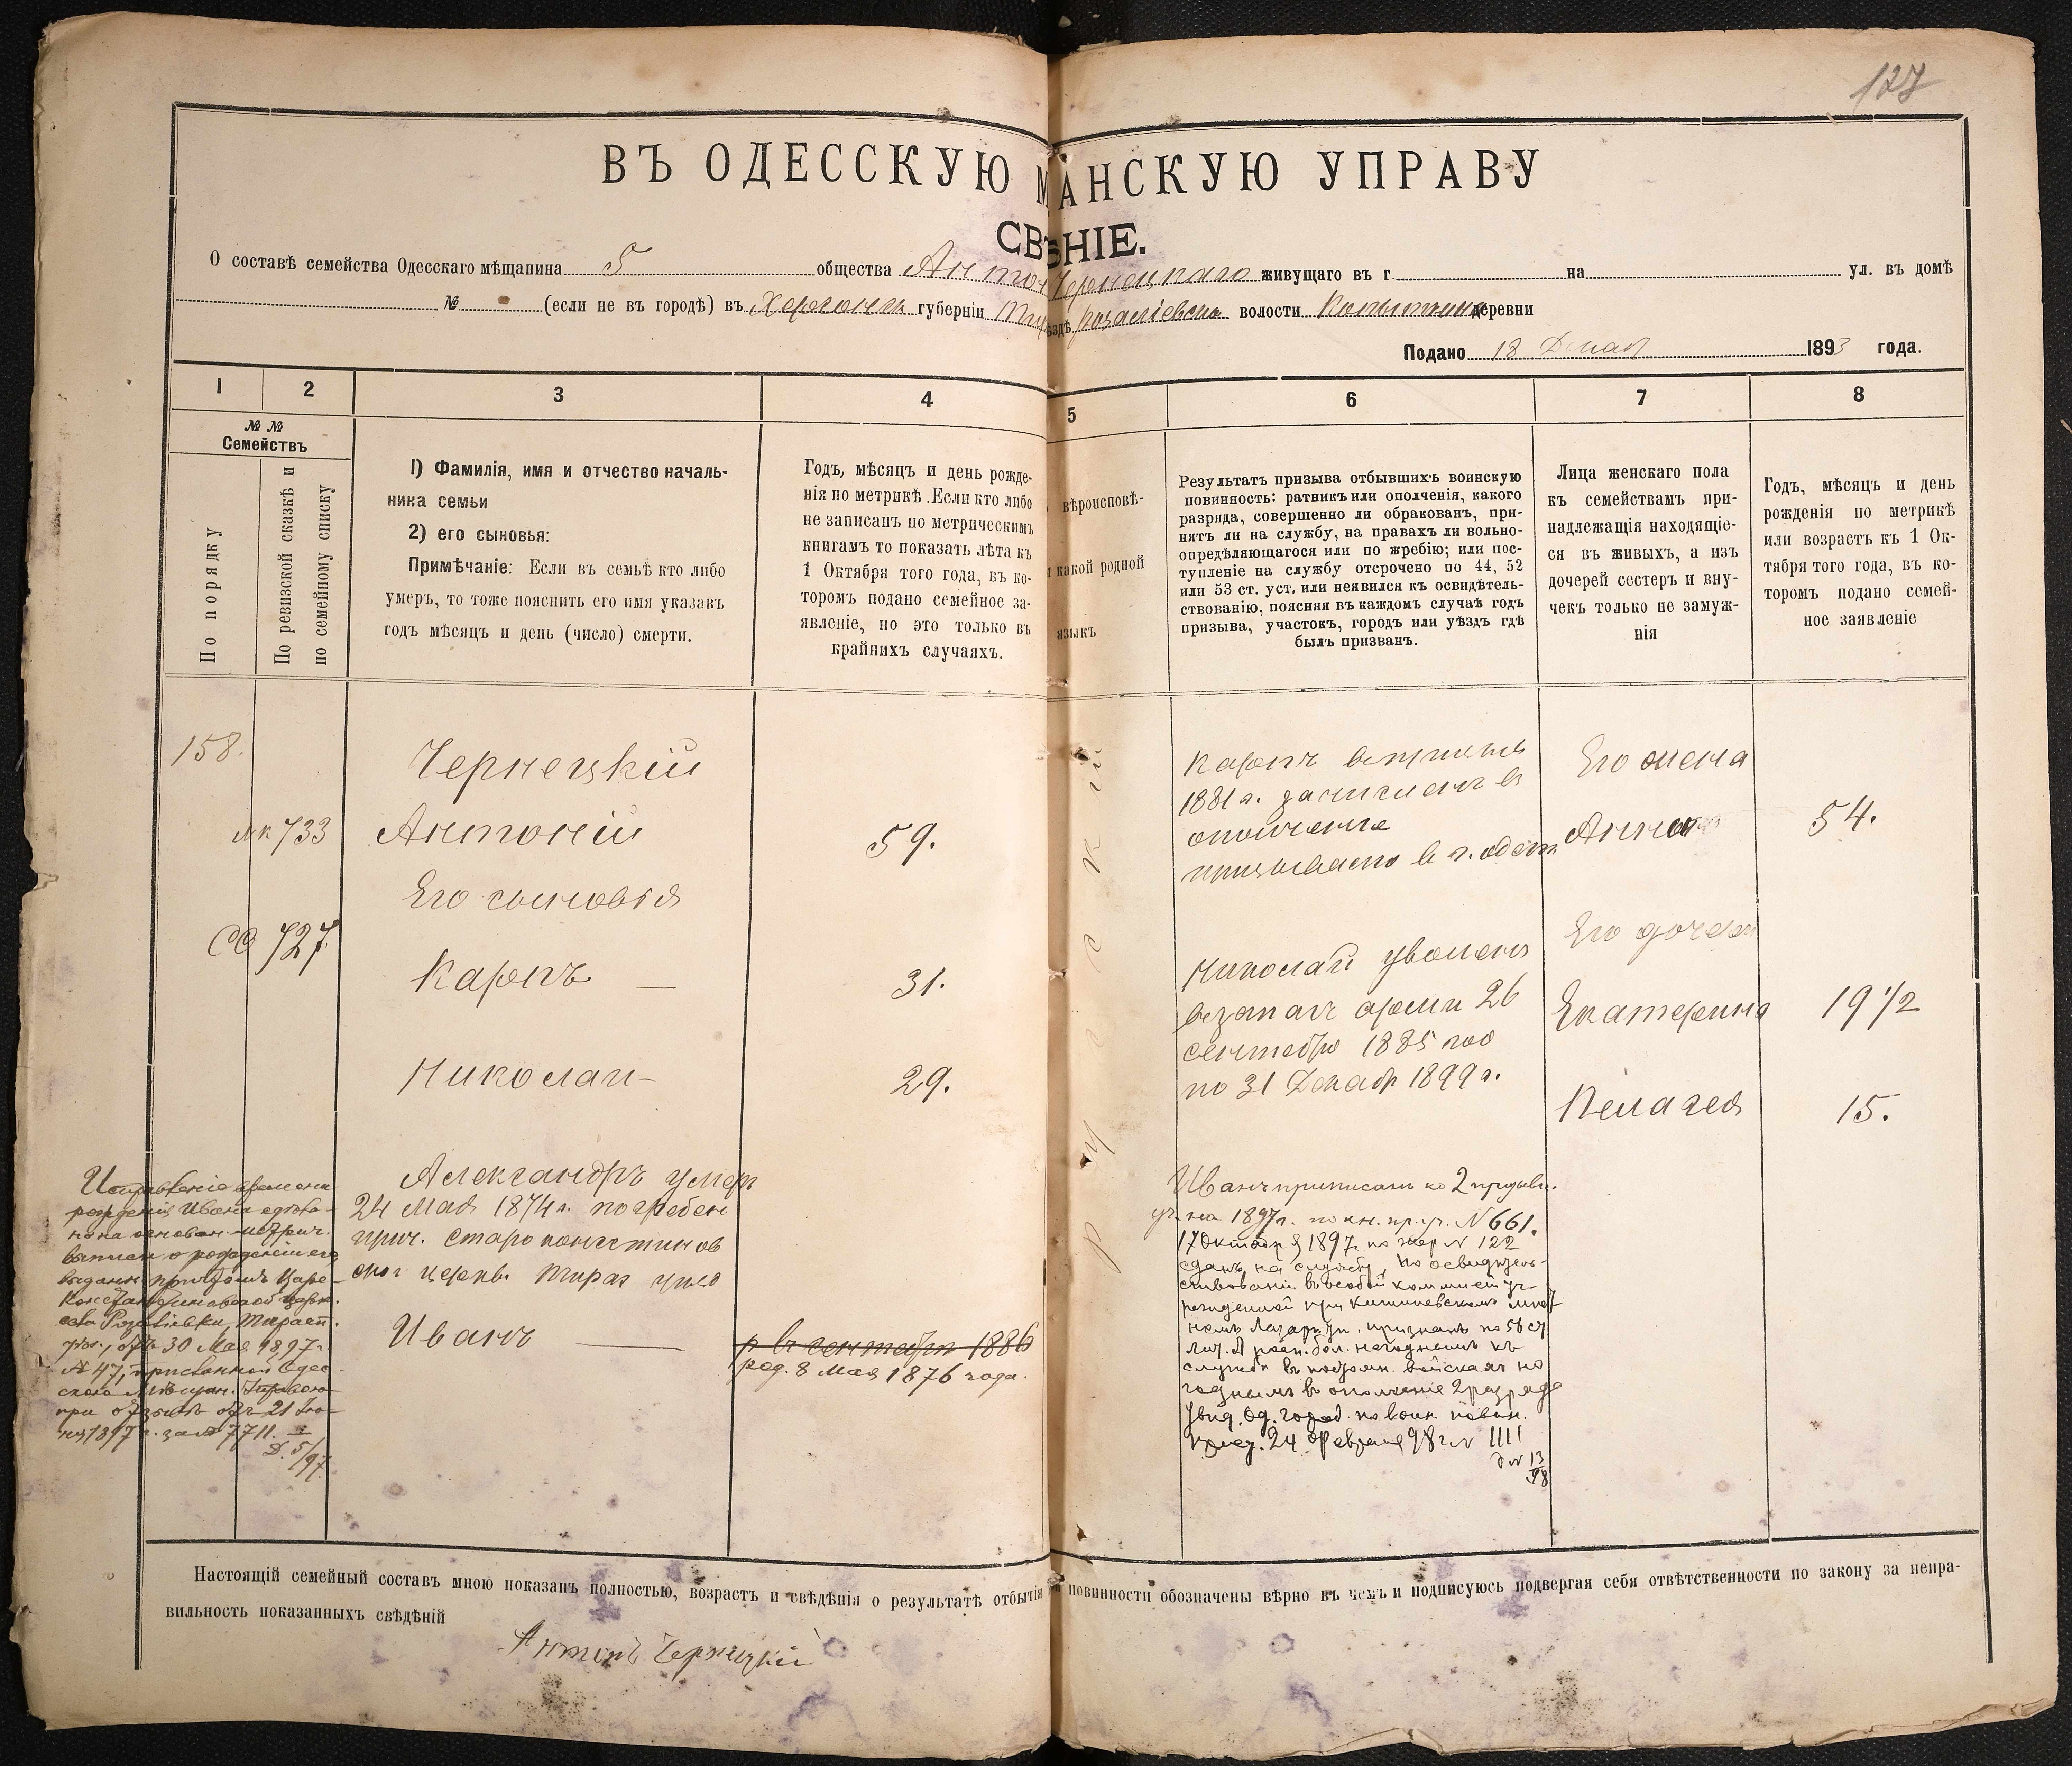 127
ВЪ ОДЕССКУЮ МАНСКУЮ УПРАВУ
СВѢНІЕ.
О составѣ семейства Одесскаго мѣщанина 5 общества Антон Чернецкаго живущаго въ г на ул. въ домѣ
№ (если не въ городѣ) въ Херсонск губерніи волости деревни
Подано 18 1893 года.
1 2 3 4 5 6 7 8
№ №
Семействъ
По порядку
По ревизской сказкѣ и
по семейному списку
1) Фамилія, имя и отчество началь-
ника семьи
2) его сыновья:
Примѣчаніе: Если въ семьѣ кто либо
умеръ, то тоже пояснить его имя указавъ
годъ мѣсяцъ и день (число) смерти.
Годъ, мѣсяцъ и день рожде-
нія по метрикѣ. Если кто либо
не записанъ по метрическимъ
книгамъ то показать лѣта къ
1 Октября того года, въ ко-
торомъ подано семейное за-
явленіе, но это только въ
крайнихъ случаяхъ.
вѣроисповѣ-
какой родной
языкъ
Результатъ призыва отбывшихъ воинскую
повинность: ратникъ или ополченія, какого
разряда, совершенно ли обракованъ, при-
нятъ ли на службу, на правахъ ли вольно-
опредѣляющагося или по жребію; или пос-
тупленіе на службу отсрочено по 44, 52
или 53 ст. уст, или неявился къ освидѣтель-
ствованію, поясняя въ каждомъ случаѣ годъ
призыва, участокъ, городъ или уѣздъ гдѣ
былъ призванъ.
Лица женскаго пола
къ семействамъ при-
надлежащія находящіе-
ся въ живыхъ, а изъ
дочерей сестеръ и вну-
чекъ только не замуж-
нія
Годъ, мѣсяцъ и день
рожденія по метрикѣ
или возрастъ къ 1 Ок-
тября того года, въ ко-
торомъ подано семей-
ное заявленіе
158.
733
727
Чернецкій
Антоній
Его сыновья
Карпъ —
Николай —
Александръ умеръ
24 Мая 1874 г. погребен
прич. Староконстатинов
ской церкви Тирас уезд
Иванъ —
59.
31.
29.
р въ сентября 1886
род. 8 Мая 1876 года.
русскій
Карпъ
1881 г. зачисленъ въ
ополчение
призывался в г. Одессе
Николай уволенъ
в запасъ армии 26
сентября 1885 год
по 31 Декабр 1899 г.
Иванъ приписанъ ко 2 призывн.
уч. на 1897 г. по кн. пр. уч. N 661.
17 Октября 1897 г. по жер N 122
сданъ на службу, по освидѣтель-
ствованіи въ особой коммисіи уч-
режденной при Кишиневскомъ мѣст-
номъ Лазаретѣ, признанъ по 56 ст
лит. А росп. бол. негоднымъ къ
службѣ въ постоян. войскахъ но
годнымъ въ ополченіе 2 разряда
Увѣд. Од. город. по воин. повин.
прис. 24 Февраля 98 г. N 1111
д N 13
98
Его жена
Анна
Его дочери
Екатерина
Пелагея
54.
19 1/2
15.
Исправленіе времени
рожденія Ивана сдѣла-
но на основан. метрич.
выписи о рожденіи его
выданн. причтомъ Царе-
Константиновской церк.
села Розаліевки, Тирасп.
уѣз., отъ 30 Мая 1897 г.
N 47, присланной Одес-
скою Мѣщан. Управою
при отзывѣ отъ 21 Iю-
ня 1897 г. за N 7711.
Д. 5/97
Настоящій семейный составъ мною показанъ полностью, возрастъ и свѣдѣнія о результатѣ отбытія повинности обозначены вѣрно въ чемъ и подписуюсь подвергая себя отвѣтственности по закону за непра-
вильность показанныхъ свѣдѣній
Антонъ Чернецкій